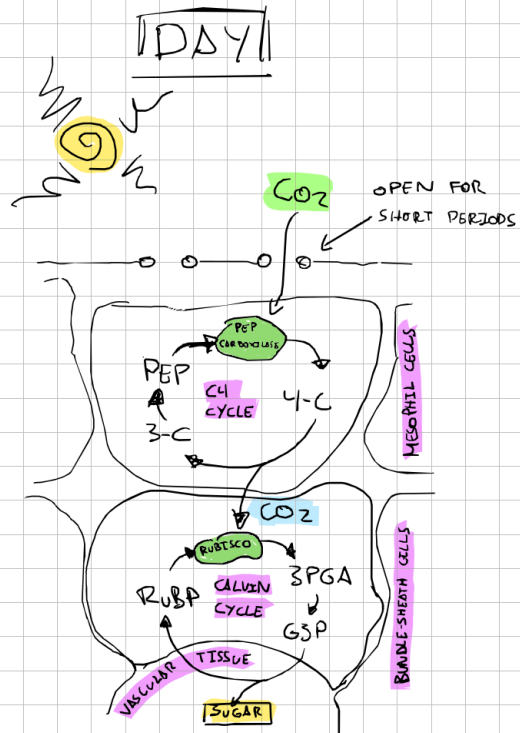 DAY
CO2
OPEN FOR
SHORT PERIODS
PEP
CARBOXILASE
PEP
C4
CYCLE
4-C
3-C
MESOPHIL CELLS
CO2
RUBISCO
3PGA
RUBP
CALVIN
CYCLE
G3P
BUNDLE-SHEATH CELLS
VASCULAR TISSUE
SUGAR